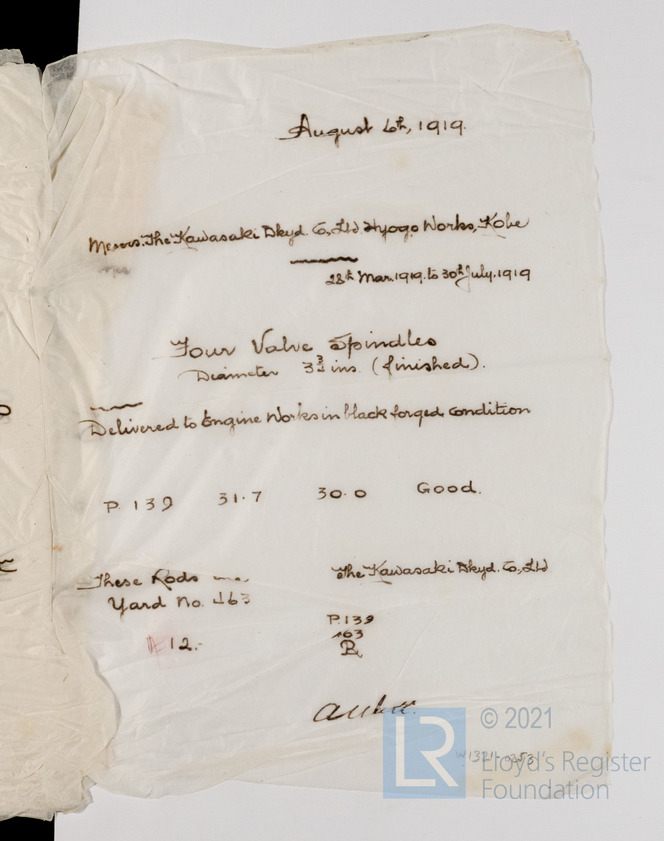 August 6th, 1919.
Messrs. The Kawasaki Dkyd. Co, Ltd Hyogo Works, Kobe
28th Mar. 1919. to 30th July. 1919
Four Valve Spindles
Diameter 3¾ ins. (finished).
Delivered to Engine Works in black forged condition
P. 139 31.7 30.0 Good.
These Rods
Yard No. 463
The Kawasaki Dkyd. Co, Ltd
P. 139
463
12.-
LR
© 2021
Lloyd's Register
Foundation